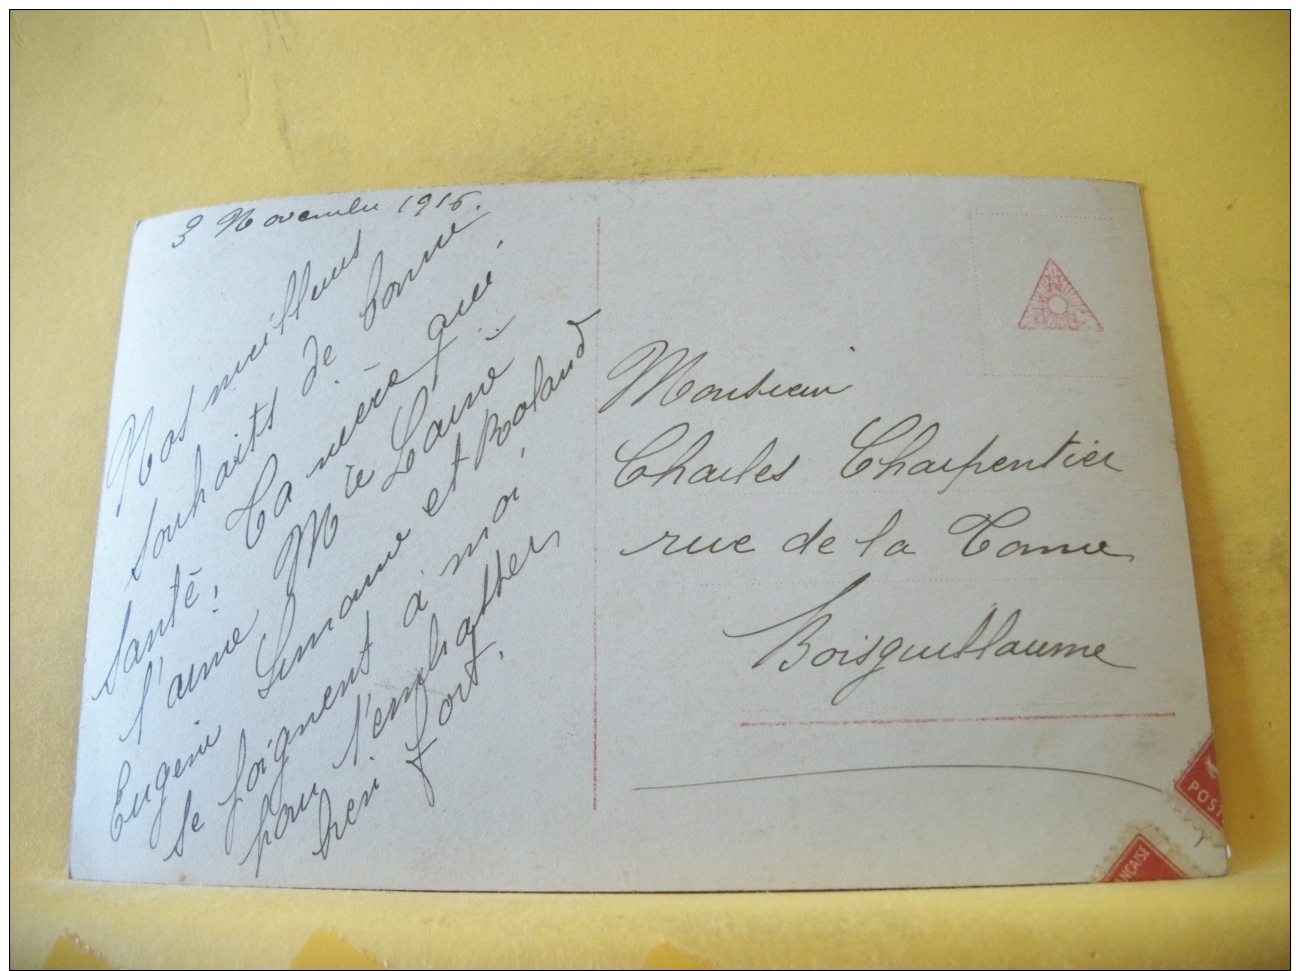 3 Novembre 1916.
Nos meilleurs
souhaits de bonne
santé. Ta mère qui
t'aime Mre Lainé
Eugenie Simone et Roland
se joignent à moi,
pour t'embrasser
bien fort.
Monsieur
Charles Charpentier
rue de la
Boisguillaume
POST
NÇAISE